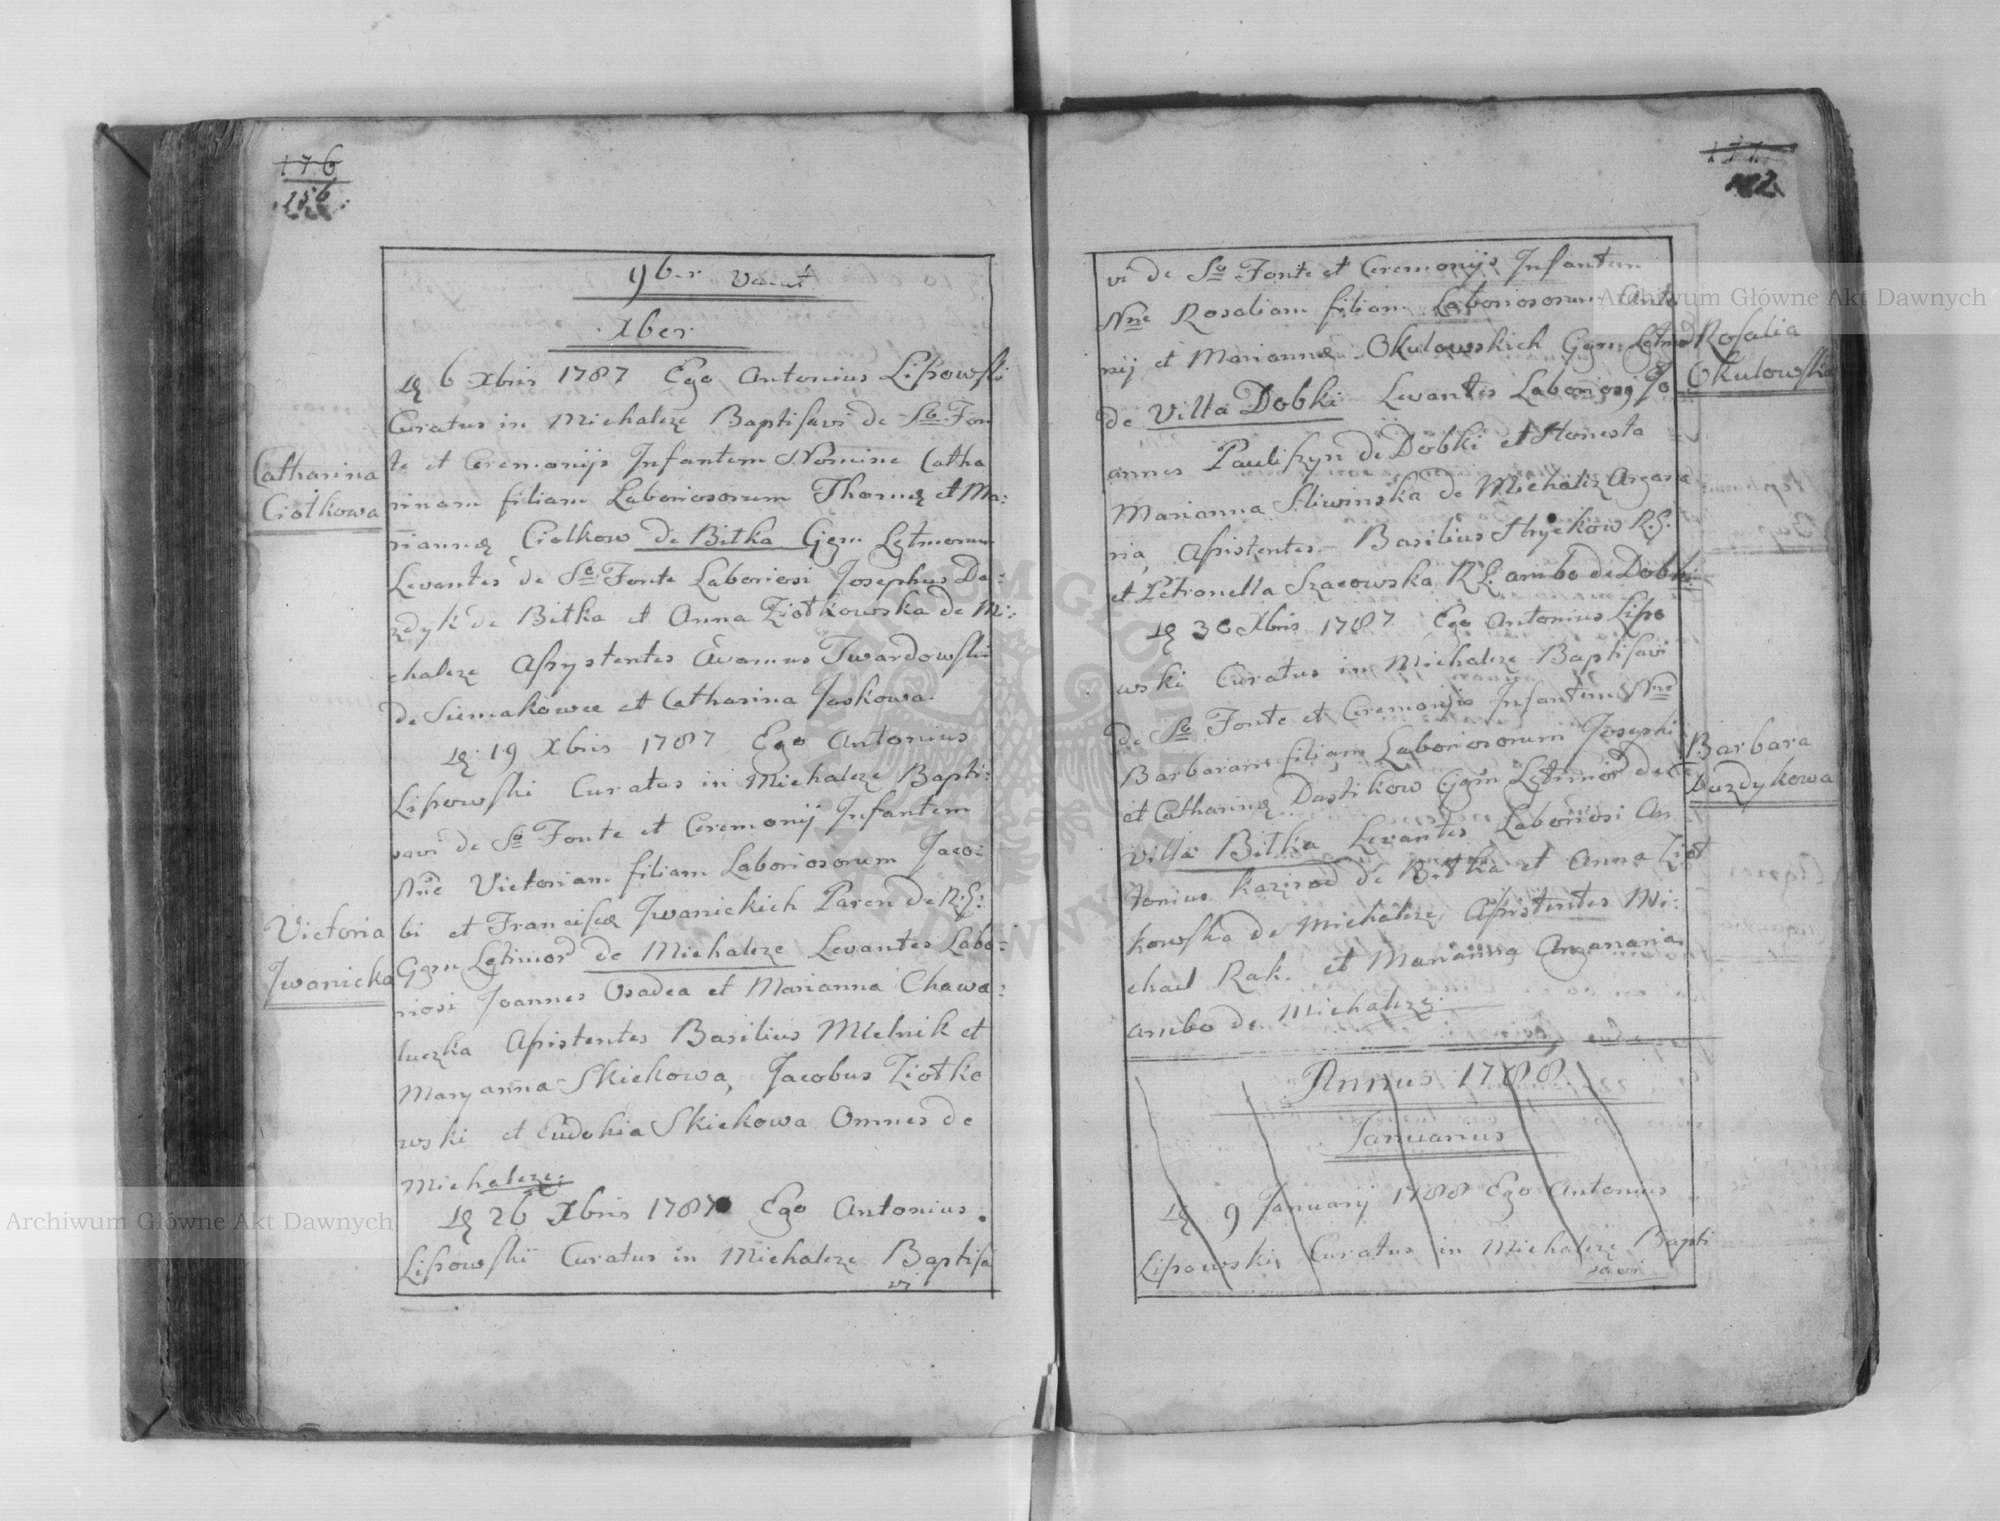 176
256
9ber vacat
Xber
Catharina
Ciołkowa
Victoria
Jwanicka
Die 6 Xbris 1787 Ego Antonius Lipowski
Curatus in Michalcze Baptisavi de So Fon
te et Ceremonijs Infantem Nomine Catha
rinam filiam Laboriosorum Thomæ et Ma:
riannæ Ciolkow de Bitka Cjgm Lgtmorum
Levantes de So Fonte Laboriosi Josephus Du:
zdyk de Bitka et Anna Ziołkowska de Mi:
chalcze Assystentes Twardowski
de Siemakowce et Catharina Jaskowa.
19 Xbris 1787 Ego Antonius
Lipowski Curatus in Michalcze Bapti:
savi de So Fonte et Ceremonij Infantem
Nne Victoriam filiam Laboriosorum Jaco:
bi et Franciscæ Jwanickich Paren de R:L:
Cjgm Lgtimor de Michalcze Levantes Labo:
riosi Joannes Osadca et Marianna Chawa:
luczka Assistentes Basilius Mlelnik et
Maryanna Skickowa, Jacobus Ziołko
wski et Eudokia Skickowa Omnes de
Michalcze.
26 Xbris 1787 Ego Antonius
Lipowski Curatus in Michalcze Baptisa
vi
vi de So Fonte et Ceremonijs Infantem
Nne Rosaliam filiam Laboriosorum Anto
nij et Mariannæ Okulowskich Cjgm Lgtmo
de Villa Dobki Levantes Laboriosg Jo
annes Pauliszyn de Dobki et Honesta
Marianna Sliwinska de Michalcz Argana
ria, Assistentes Basilius Hryckow R.L.
et Petronella Szacowska R L: ambo de Dobki
30 Xbris 1787 Ego Antonius Lipo
wski Curatus in Michalcze Baptisavi
de So Fonte et Ceremonijs Infantem Nne
Barbaram filiam Laboriosorum Josephi
et Catharinæ Dustikow Cjgm Lgtimor de
Villa Bitka Levantes Laboriosi An
tonius Kazirod de Bitka et Anna Zioł
kowska de Michalcze, Assistentes Mi:
chael Rak. et Marianna Arganaria
ambo de Michalcze.
Annus 1788.
Januarius
9 Januarij 1788 Ego Antonius
Lipowski Curatus in Michalcze Bapti
savi
Rosalia
Okulowska
Barbara
Duzdykowa
Archiwum Główne Akt Dawnych
Archiwum Główne Akt Dawnych
ARCHIWUM GŁÓWNE AKT DAWNYCH